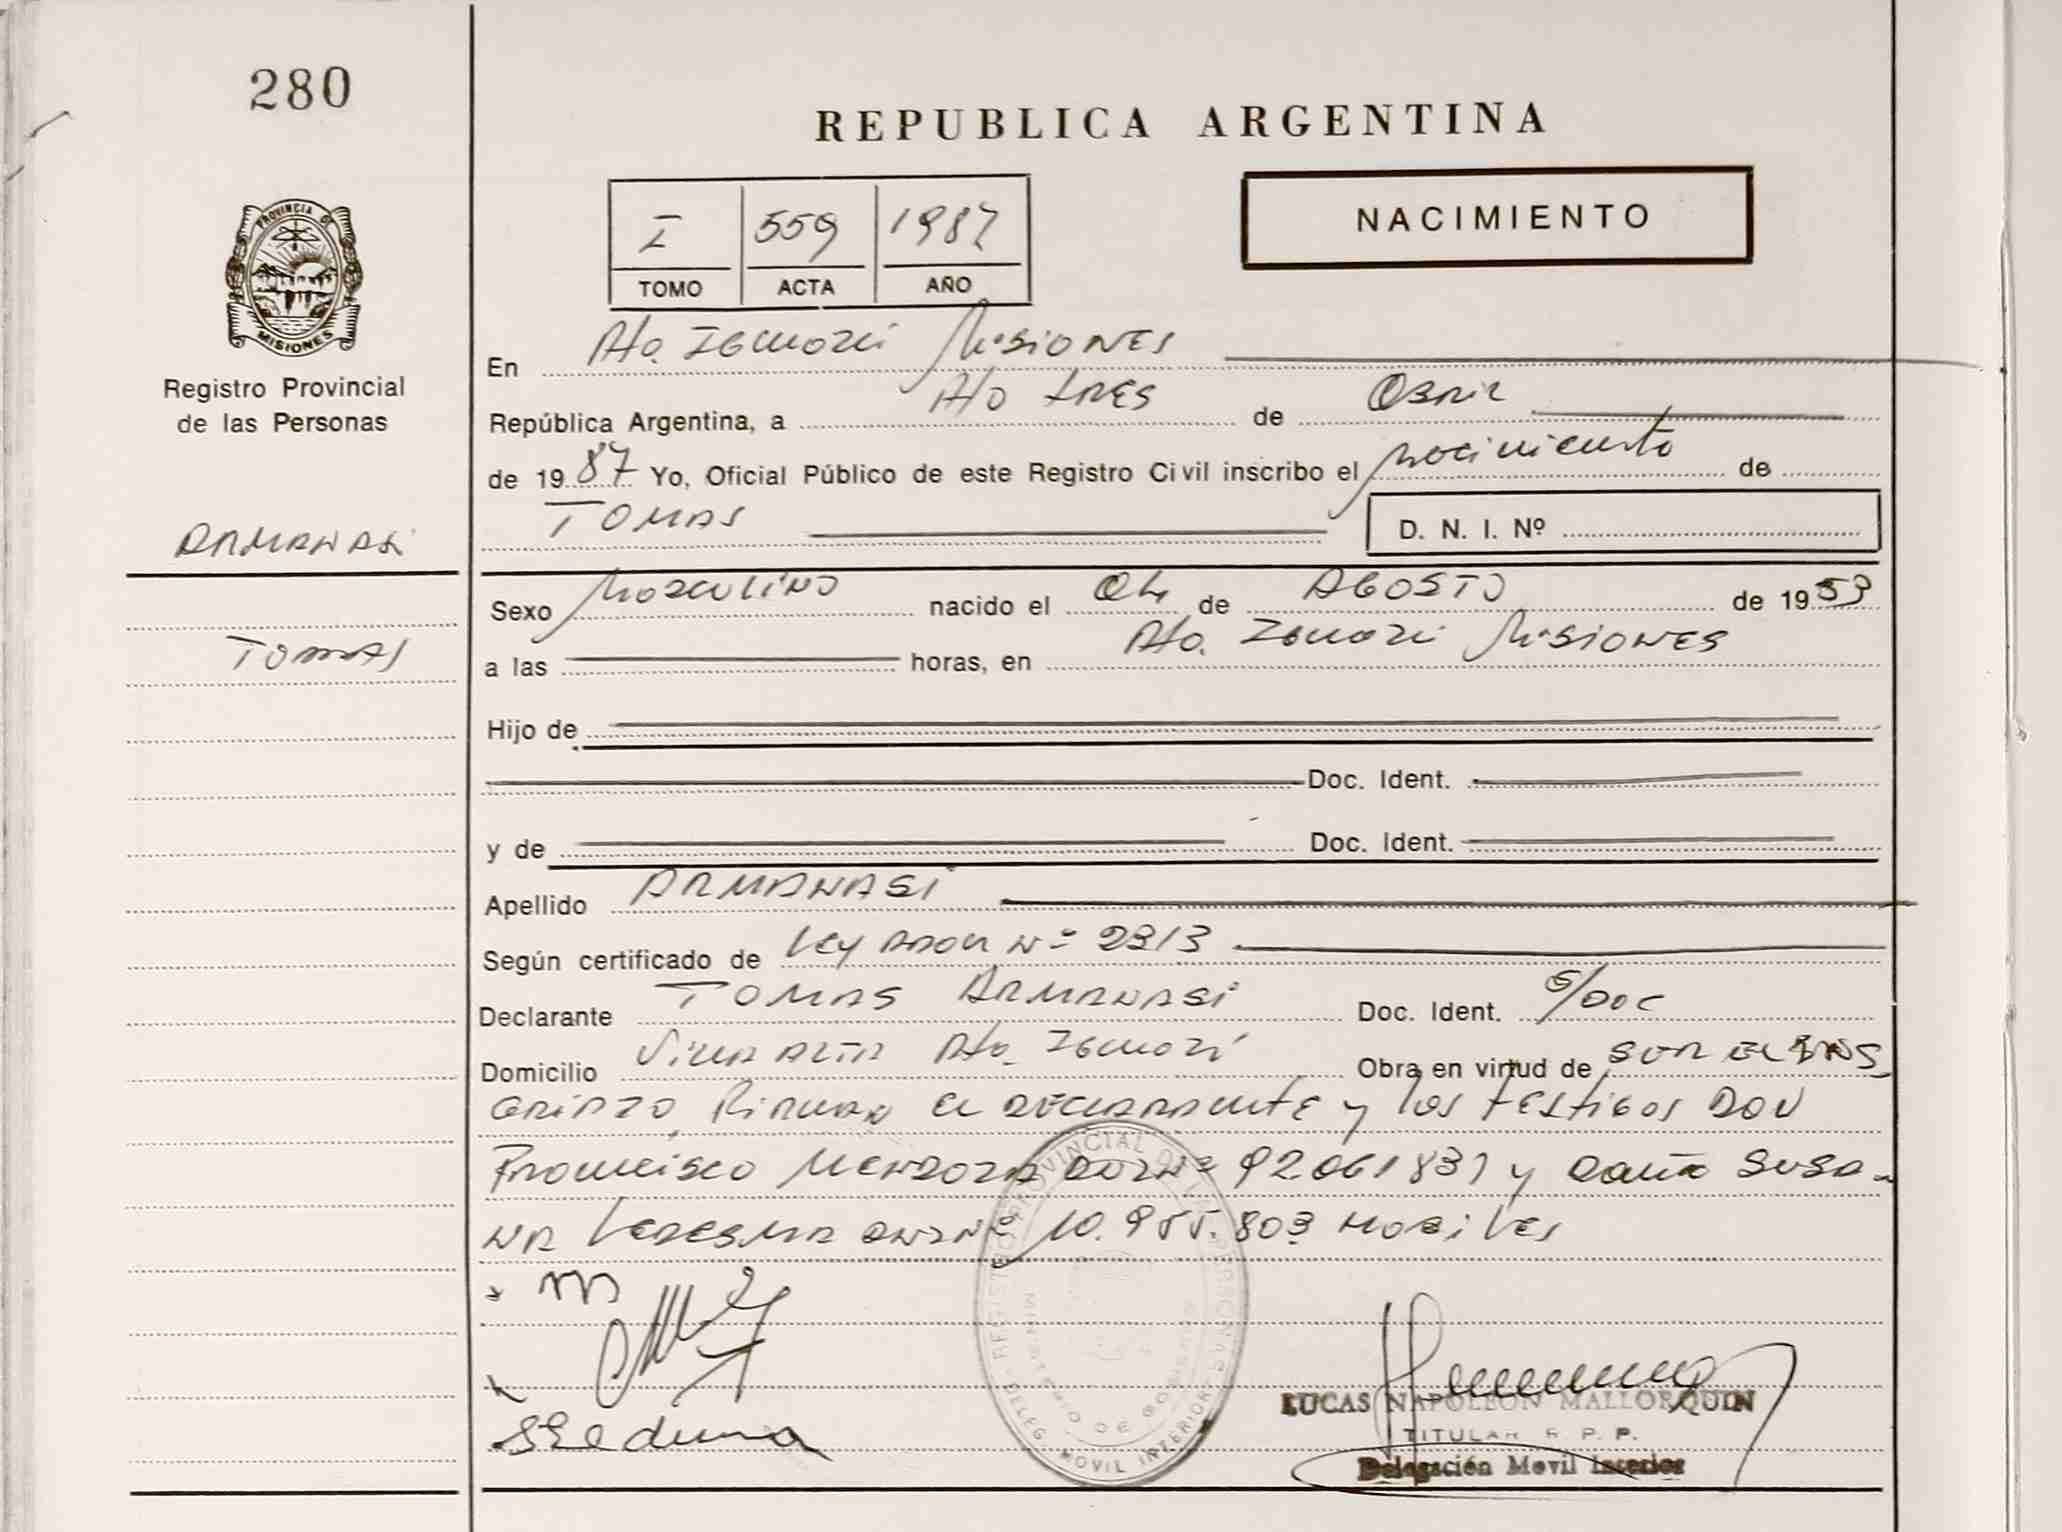 280
REPUBLICA ARGENTINA
PROVINCIA D
MISIONES
Registro Provincial
de las Personas
I 559 1987
TOMO ACTA AÑO
NACIMIENTO
En Pto. Iguazú Misiones
República Argentina, a los tres de Abril
de 1987 Yo, Oficial Público de este Registro Civil inscribo el nacimiento de
TOMAS D. N. I. Nº
ARMANASI
TOMAS
Sexo Masculino nacido el 04 de AGOSTO de 1953
a las horas, en Pto. Iguazú Misiones
Hijo de
Doc. Ident.
y de Doc. Ident.
Apellido ARMANASI
Según certificado de Ley Nº 2313
Declarante TOMAS ARMANASI Doc. Ident. S/DOC
Domicilio Villa Alta Pto. Iguazú Obra en virtud de SER EL INS
CRIPTO, Firman el declarante y los testigos DON
Francisco Mendoza DNI Nº 92061831 y Doña SUSA-
NA Ledesma DNI Nº 10.955.803 Hábiles
x m
Sledesma
REGISTRO PROVINCIAL DE LAS PERSONAS
MINISTERIO DE GOBIERNO
DELEG. MOVIL INTERIOR
LUCAS NAPOLEON MALLORQUIN
TITULAR R. P. P.
Delegación Movil Interior